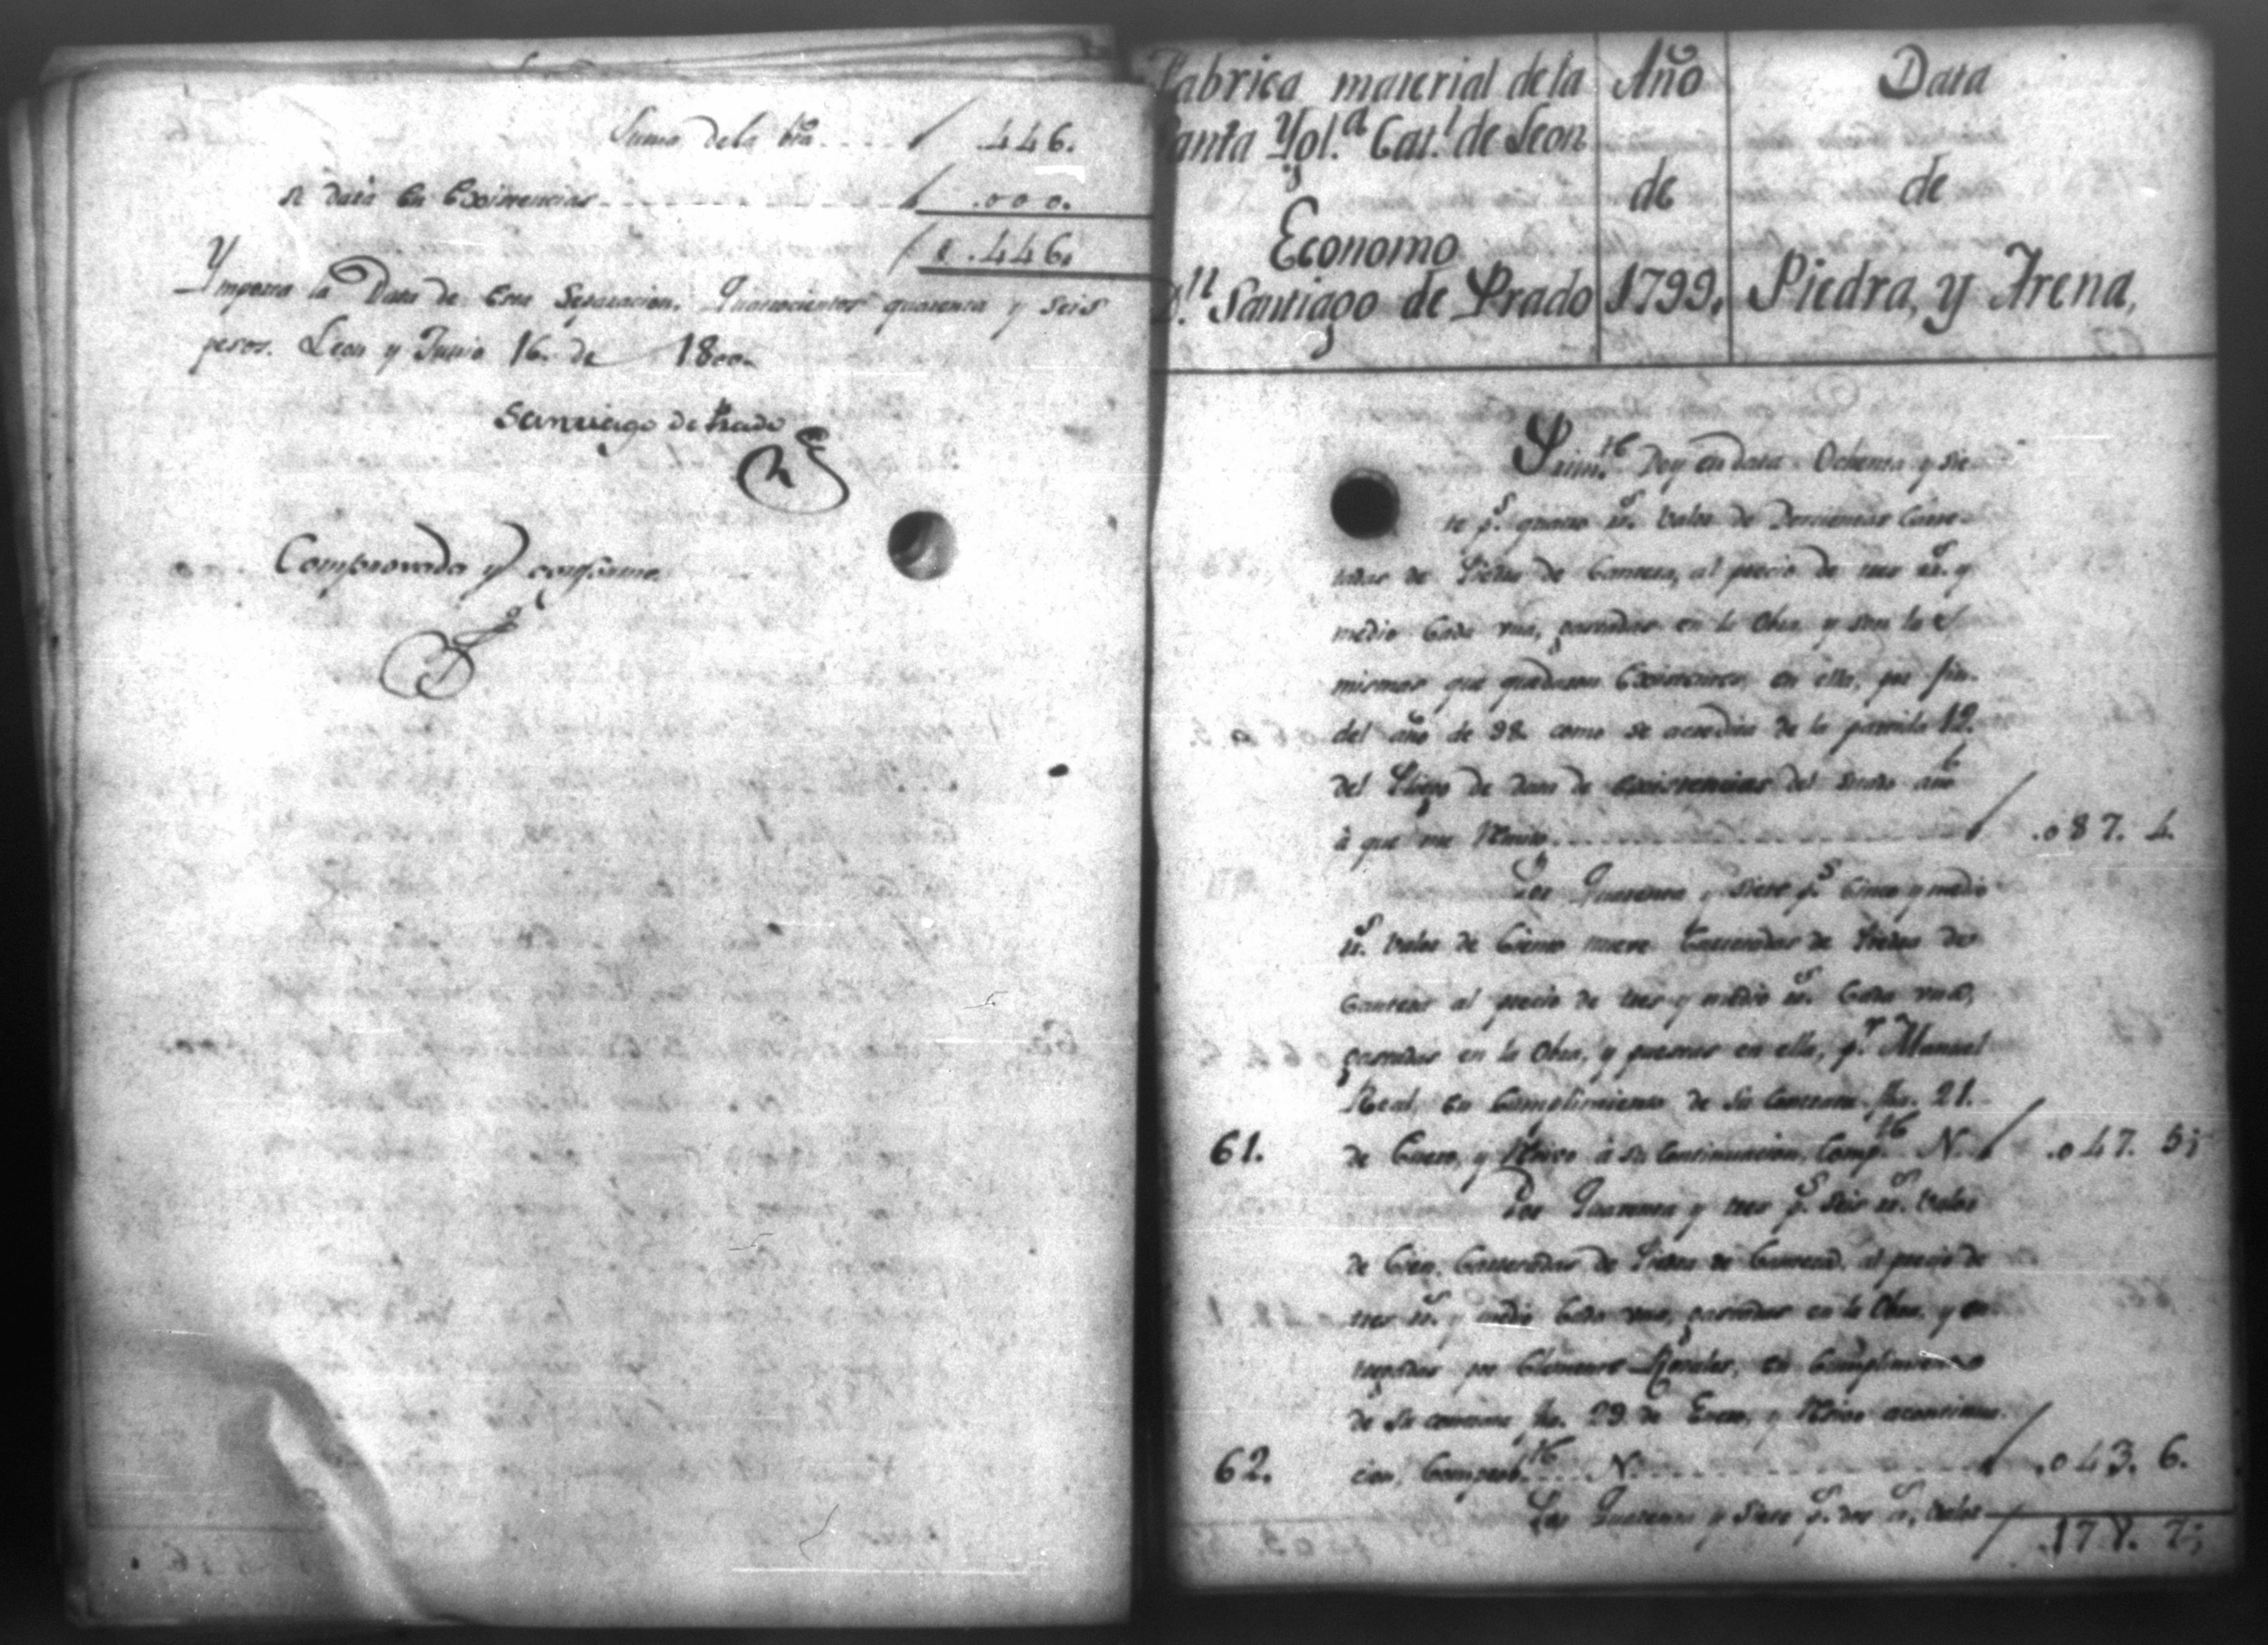 Suma de la bta .... 446.
se data en Existencias .... .000.
.446.
Ymporta la Data de esta Separacion. Quatrocientos quarenta y seis
pesos. Leon y Junio 16. de 1800.
Santiago de Prado
Comprovada y conforme
Fabrica material de la
Santa Ygl.ª Cat.l de Leon
Economo
D.n Santiago de Prado
Año
de
1799.
Data
de
Piedra, y Arena,
Prim.te Doy en data Ochenta y sie-
te p.s quatro rr.s valor de Doscientas Carre-
tadas de Piedra de Cantera, al precio de tres rr.s y
medio Cada una, puestas en la Obra y son las
mismas que quedaron Existentes en ella, por fin
del año de 98 como se acredita de la partida 12.
del Pliego de data de existencias del citado año
à que me Remito .... .087. 4.
Por Quarenta y siete p.s Cinco y medio
rr.s valor de Ciento nueve Carretadas de Piedra de
Cantera al precio de tres y medio rr.s Cada una,
puestas en la Obra, y puestas en ella, p.r Manuel
Real, en Cumplimiento de su Contrata fha. 21.
61. de Enero, y Recivo à su Continuacion, Comp.te N. .047. 5;
Por Quarenta y tres p.s seis rr.s valor
de Cien Carretadas de Piedra de Cantera al precio de
tres rr.s y medio Cada una, puestas en la Obra y en-
tregadas por Clemente Rosales, en Cumplimiento
de su contrata fha. 29 de Enero, y Recivo a continua-
62. cion, Comprob.te N. .... .043. 6.
Por Quarenta y siete p.s dos rr.s valor
.178. 7;